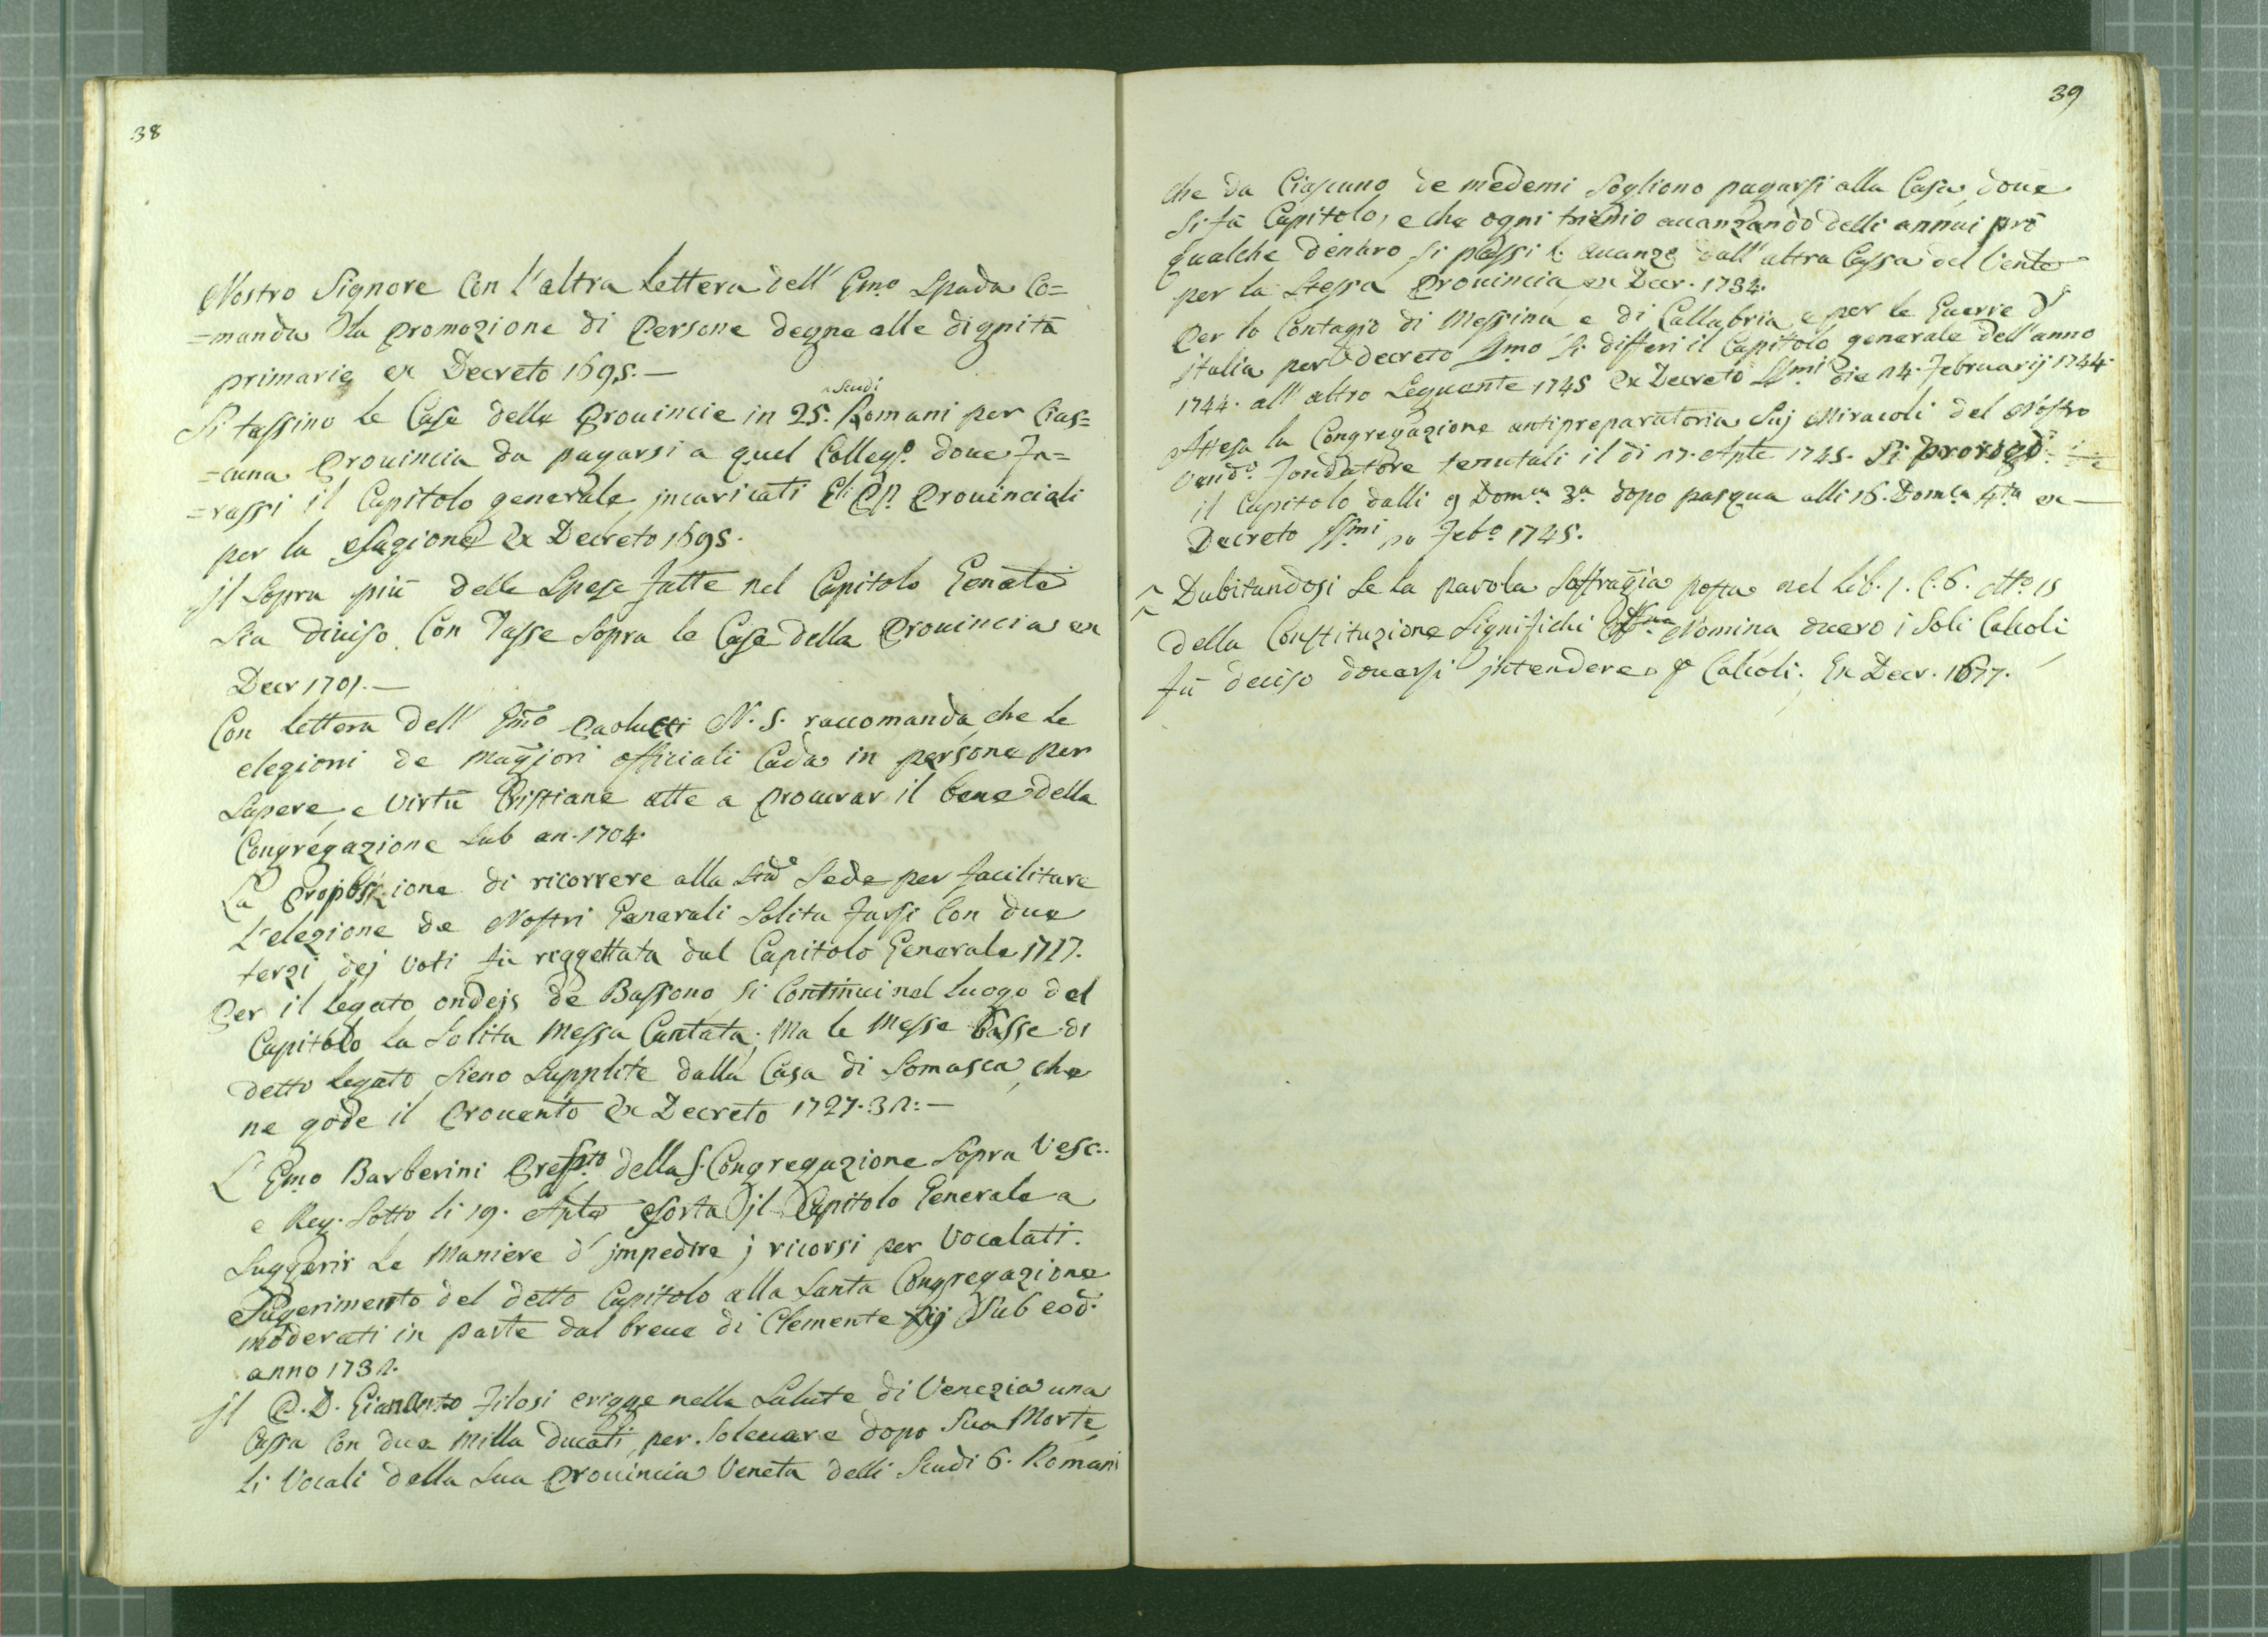 38
Nostro Signore Con l'altra Lettera dell' Emo Spada Co=
=manda la promozione di Persone degne alle dignità
primarie ex Decreto 1695.—
Si tassino le Case delle Provincie in 25. ^Scudi Romani per Cias=
=cuna Provincia da pagarsi a quel Collegº. doue Fa=
=rassi il Capitolo generale, jncaricati Gli PP. Prouinciali
per la esagione ex Decreto 1695.
Jl Sopra più delle Spese fatte nel Capitolo Genāle
Sia diuiso Con Tasse Sopra le Case della Prouincia ex
Decr 1701.—
Con lettera dell' Emo Paolucci N. S. raccomanda che le
elegioni de maggiori officiali Cada in persone per
Sapere, e Virtù Cristiane atte a procurar il bene della
Congregazione Sub an. 1704.
La Proposizione di ricorrere alla Sta Sede per facilitare
L'elezione de Nostri Generali Solita farsi Con due
terzi dej Voti fù riggettata dal Capitolo Generale 1717.
Per il legato ondejs de Bassono si Continui nel luogo del
Capitolo la Solita Messa Cantata; Ma le Messe basse di
detto legato Sieno Supplite dalla Casa di Somasca, che
ne gode il Prouento ex Decreto 1727.32:—
L' Emo Barberini Prefto della S. Congregazione Sopra Vesc..
e Reg. Sotto li 19. Aple esorta jl Capitolo Generale a
Suggerir Le Maniere d' jmpedire j ricorsi per Vocalati.
Sugerimento del detto Capitolo alla Santa Congregazione
moderati in parte dal breue di Clemente Xij Sub eod.
anno 1732.
Jl P. D. Giananto Filosi erigge nella Salute di Venezia una
Cassa Con due Milla ducati, per Soleuare dopo Sua Morte
li Vocali della Sua Prouincia Veneta delli Scudi 6. Romani
39
che da Ciascuno de medemi Sogliono pagarsi alla Casa, doue
Si fà Capitolo, e che ogni trienio auanzando delli annui prò
qualche denaro, si passi l. auanzo dall' altra Cassa del Vento
per la Stessa Prouincia, ex Decr. 1734.
Per lo Contagio di Messina e di Callabria e per le Guerre d'
jtalia per decreto SSmo Si differi il Capitolo generale dell'anno
1744. all' altro Seguente 1745 Ex Decreto SSmi die 14. Februarij 1744.
Attesa la Congregazione antipreparatoria Suj Miracoli del Nostro
Vendº. Fondatore tenutali il di 27. Aple 1745. Si prorogò
il Capitolo dalli 9 Domca 3a dopo pasqua alli 16. Domca 4ta ex—
Decreto SSmi Febº 1745.
Dubitandosi Se la parola Soffragia posta nel Lib. 1. C. 6. Nº 15
della Constituzione Significhi Nomina ouero i Soli Calcoli
fù deciso douersi jntendere p Calcoli. Ex Decr. 1677.